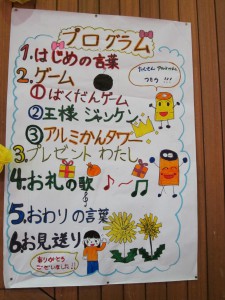 プログラム
1.はじめの言葉
2.ゲーム
①ばくだんゲーム
②王様ジャンケン
③アルミかんタワー
3.プレゼントわたし
4.お礼の歌
5.おわりの言葉
6.お見送り
ありがとう
ございました!!